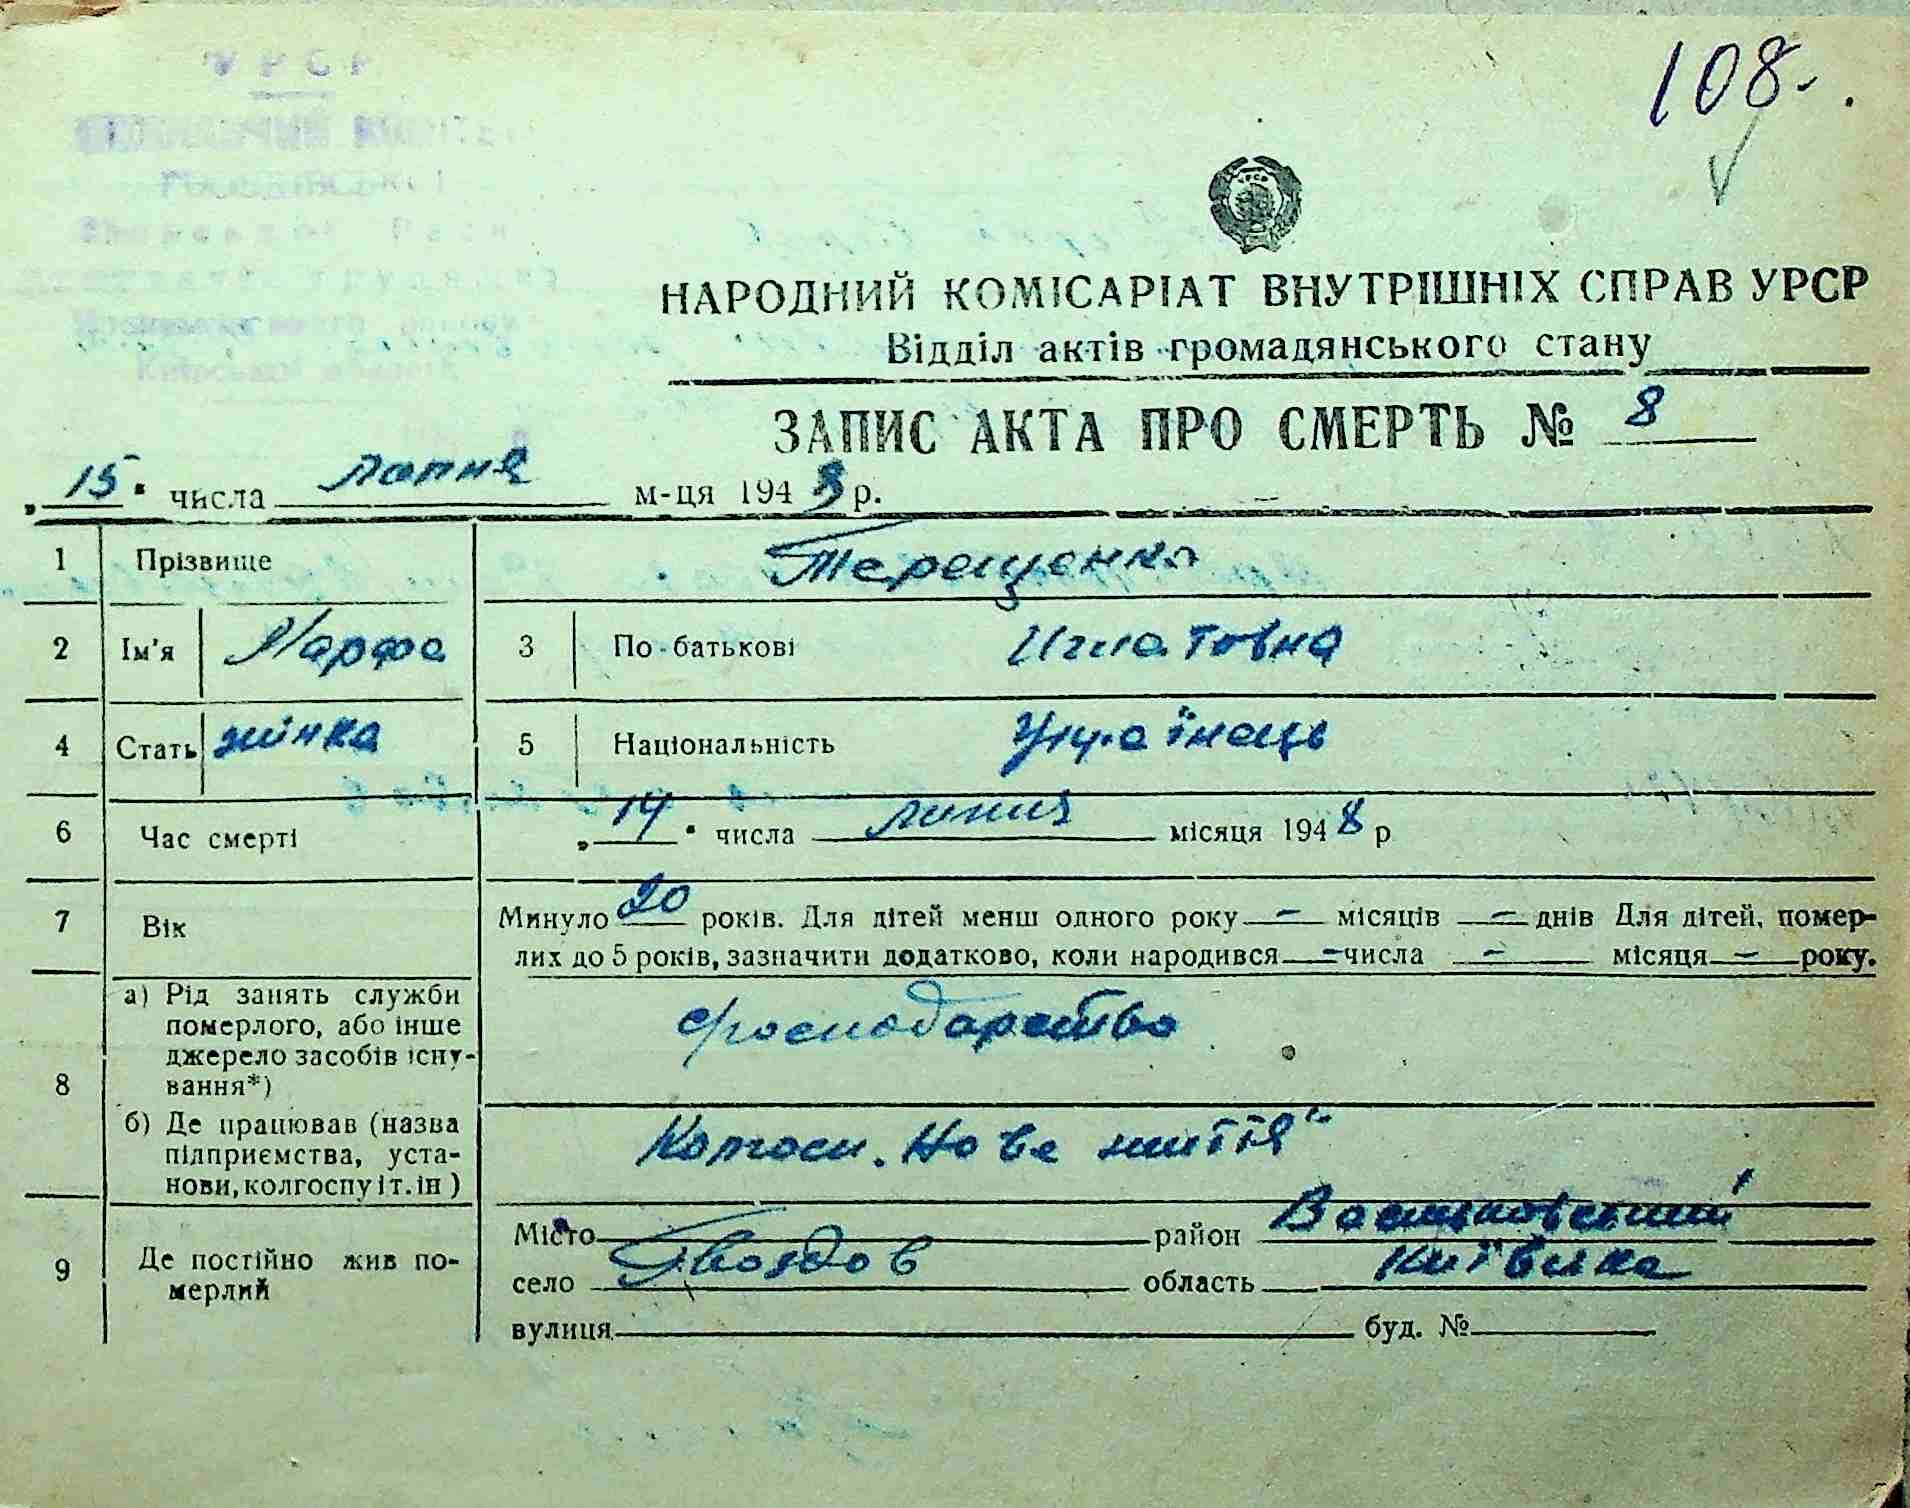 УРСР
108.
НАРОДНИЙ КОМІСАРІАТ ВНУТРІШНІХ СПРАВ УРСР
Відділ актів громадянського стану
ЗАПИС АКТА ПРО СМЕРТЬ № 8
„15" числа липня м-ця 1948 р.
1 Прізвище Терещенко
2 Ім'я Марфа 3 По-батькові Игнатовна
4 Стать жінка 5 Національність Українець
6 Час смерті „14" числа липня місяця 1948 р
7 Вік Минуло 20 років. Для дітей менш одного року — місяців — днів Для дітей, помер-
лих до 5 років, зазначити додатково, коли народився — числа — місяця — року.
8 а) Рід занять служби
померлого, або інше
джерело засобів існу-
вання*) господарство
б) Де працював (назва
підприємства, уста-
нови, колгоспу і т. ін) Колгосп „Нове життя"
9 Де постійно жив по-
мерлий
Місто район Васильковський
село Гвоздов область Київська
вулиця буд. №